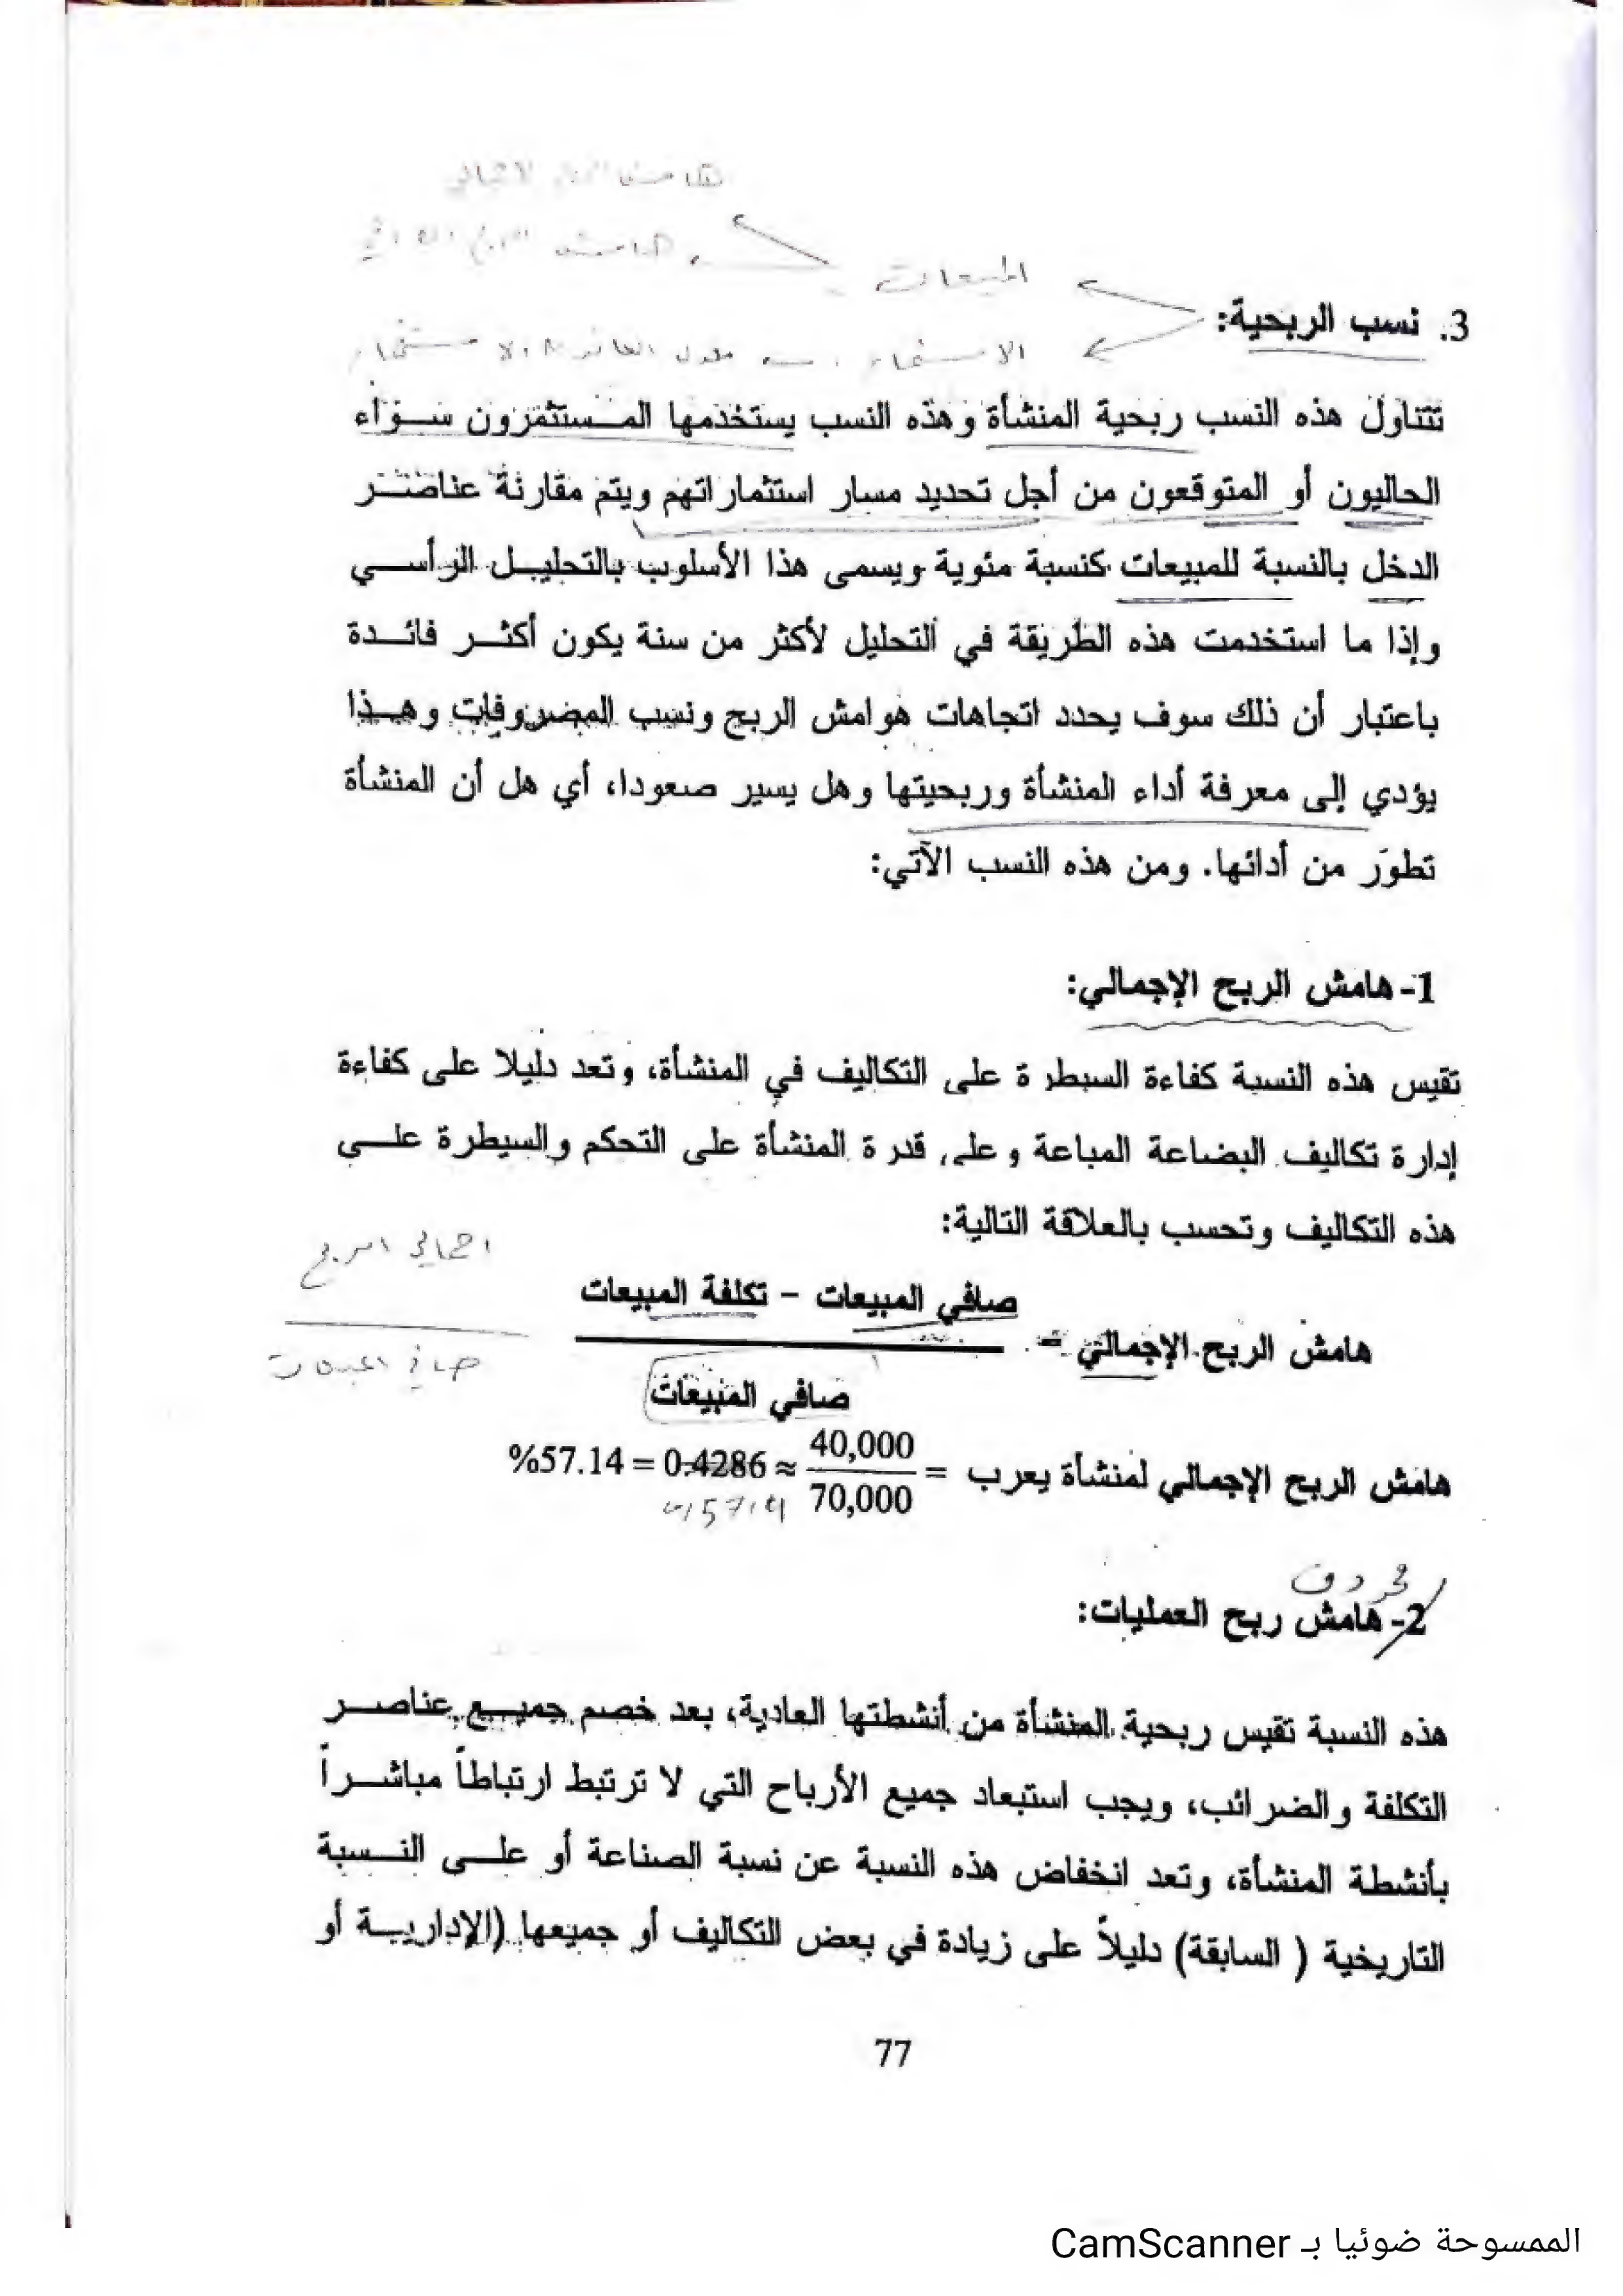 هامش الربح الاجمالي
هامش الربح الصافي
المبيعات
3. نسب الربحية:
الاستثمار معدل العائد الاستثمار
تتناول هذه النسب ربحية المنشأة وهذه النسب يستخدمها المستثمرون سواء
الحاليون أو المتوقعون من أجل تحديد مسار استثماراتهم ويتم مقارنة عناصر
الدخل بالنسبة للمبيعات كنسبة مئوية ويسمى هذا الأسلوب بالتحليل الرأسي
وإذا ما استخدمت هذه الطريقة في التحليل لأكثر من سنة يكون أكثر فائدة
باعتبار أن ذلك سوف يحدد اتجاهات هوامش الربح ونسب المصروفات وهذا
يؤدي إلى معرفة أداء المنشأة وربحيتها وهل يسير صعودا، أي هل أن المنشأة
تطور من أدائها. ومن هذه النسب الآتي:
1- هامش الربح الإجمالي:
تقيس هذه النسبة كفاءة السيطرة على التكاليف في المنشأة، وتعد دليلا على كفاءة
إدارة تكاليف البضاعة المباعة وعلى قدرة المنشأة على التحكم والسيطرة على
هذه التكاليف وتحسب بالعلاقة التالية:
اجمالي الربح
صافي المبيعات - تكلفة المبيعات
هامش الربح الإجمالي =
صافي المبيعات
صافي المبيعات
هامش الربح الإجمالي لمنشأة يعرب = 40,000 / 70,000 ≈ 0.4286 = 57.14%
0,5714
محذوف
2- هامش ربح العمليات:
هذه النسبة تقيس ربحية المنشأة من أنشطتها العادية، بعد خصم جميع عناصر
التكلفة والضرائب، ويجب استبعاد جميع الأرباح التي لا ترتبط ارتباطاً مباشراً
بأنشطة المنشأة، وتعد انخفاض هذه النسبة عن نسبة الصناعة أو على النسبة
التاريخية ( السابقة) دليلاً على زيادة في بعض التكاليف أو جميعها (الإدارية أو
77
الممسوحة ضوئيا بـ CamScanner